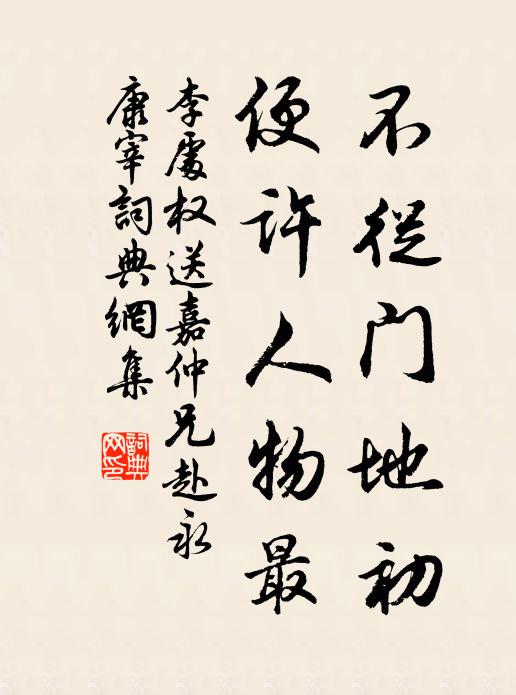 不從門地初
便許人物最
李處权送嘉仲兄赴永
康宰詞典網集
詞典
网印